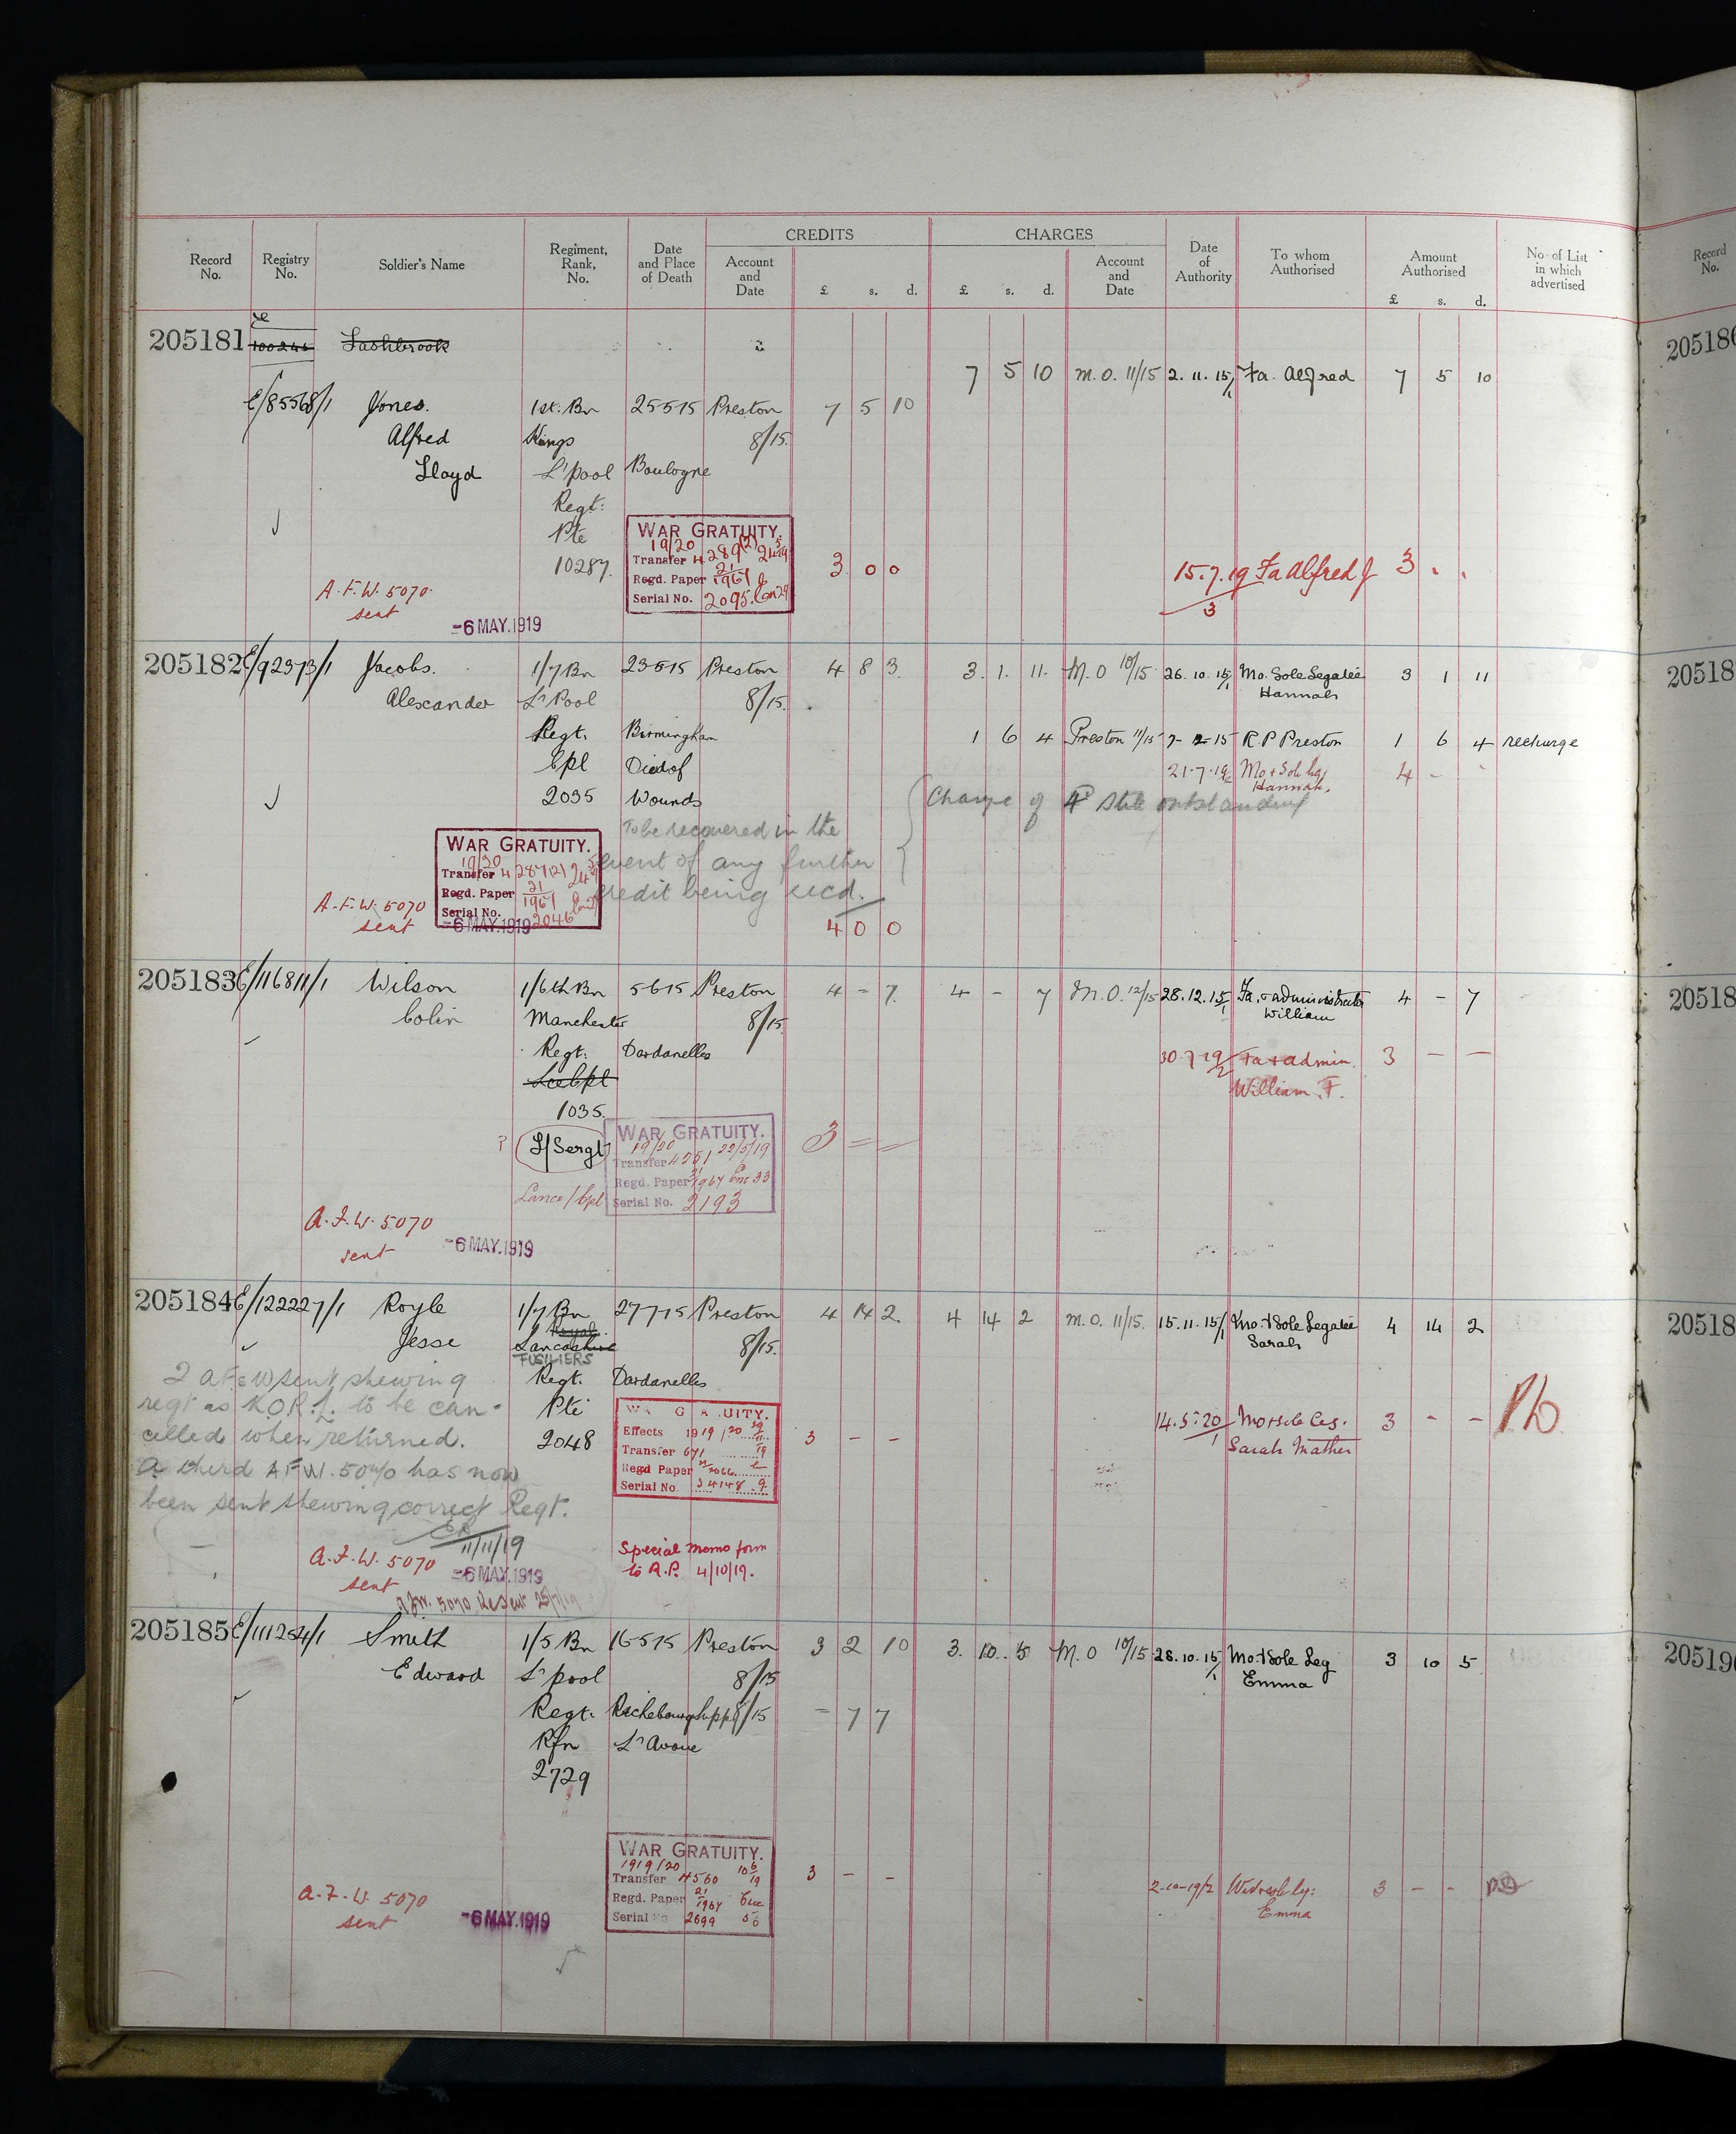 CREDITS CHARGES
Record No. Registry No. Soldier's Name Regiment, Rank, No. Date and Place of Death Account and Date £ s. d. £ s. d. Account and Date Date of Authority To whom Authorised Amount Authorised £ s. d. No. of List in which advertised
Record No.
205181 100246 Lashbrook
205186
7 5 10 M.O. 11/15 2.11.15/1 Fa. Alfred 7 5 10
E/85568/1 Jones. 1st. Bn 25 5 15 Preston 7 5 10
Alfred Kings 8/15.
Lloyd L'pool Boulogne
Regt:
Pte
10287.
WAR GRATUITY.
19/20
Transfer 4289(2) 24 5/19
Regd. Paper 21/1961
Serial No. 2095.
3 0 0
15.7.19/3 Fa Alfred J 3 . .
A.F.W. 5070.
sent
-6 MAY.1919
205182 E/92373/1 Jacobs. 1/7 Bn 23 5 15 Preston 4 8 3. 3. 1. 11. M.O 10/15 26.10.15/1 Mo. Sole Legatée 3 1 11
20518
Alexander L'Pool 8/15. Hannah
Regt. Birmingham 1 6 4 Preston 11/15 7-12-15 R.P Preston 1 6 4 recharge
Cpl Died of 21.7.19 Mo + Sole Leg. 4 - -
Hannah.
2035 Wounds Charge of 4d still outstanding
To be recovered in the
event of any further
credit being recd.
WAR GRATUITY.
19/20
Transfer 4287(2) 24 5/19
Regd. Paper 21/1961
Serial No. 2046
-6 MAY.1919
A.F.W. 5070
sent
4 0 0
205183 E/116811/1 Wilson 1/6th Bn 5 6 15 Preston 4 - 7. 4 - 7 M.O. 12/15 28.12.15/1 Fa. & administrator 4 - 7
20518
Colin Manchester 8/15. William
Regt: Dardanelles 30.7.19/2 Fa + admin. 3 - -
Lce Cpl William. F.
1035.
? L/Sergt
WAR GRATUITY.
19/20
Transfer 4251 22/5/19
Regd. Paper 21/1964 Enc 33
Serial No. 2193
3 = =
Lance/Cpl
A.F.W. 5070
sent
-6 MAY.1919
205184 E/122227/1 Royle 1/7 Bn 27 7 15 Preston 4 14 2. 4 14 2 M.O. 11/15. 15.11.15/1 Mo. + Sole Legatée 4 14 2
20518
Jesse Royal Lancashire 8/15. Sarah
FUSILIERS
2 A.F.W. sent shewing Regt. Dardanelles
regt as K.O.R.L. to be can- Pte
celled when returned. 2048
A third AFW. 5070 has now
been sent shewing correct Regt.
11/11/19
GRATUITY.
Effects 1919/20
Transfer 671
Regd Paper 21/2066
Serial No. 34148
3 - -
14.5.20/1 Mo + sole Leg. 3 - -
Sarah Mather
Special memo form
to R.P. 4/10/19.
A.F.W. 5070
sent
-6 MAY.1919
AFW. 5070 Resent
205185 E/111264/1 Smith 1/5 Bn 16 5 15 Preston 3 2 10 3. 10. 5 M.O 10/15 28.10.15/1 Mo. + Sole Leg 3 10 5
205190
Edward L'pool 8/15 Emma
Regt. Richebourg Suppl 8/15 - 7 7
Rfn L'Avoue
2729
WAR GRATUITY.
1919/20
Transfer 4560 10 6/19
Regd. Paper 21/1964 Enc
Serial No 2699 50
3 - -
2-10-19/2 Emma 3 - -
A.F.W. 5070
sent
-6 MAY.1919